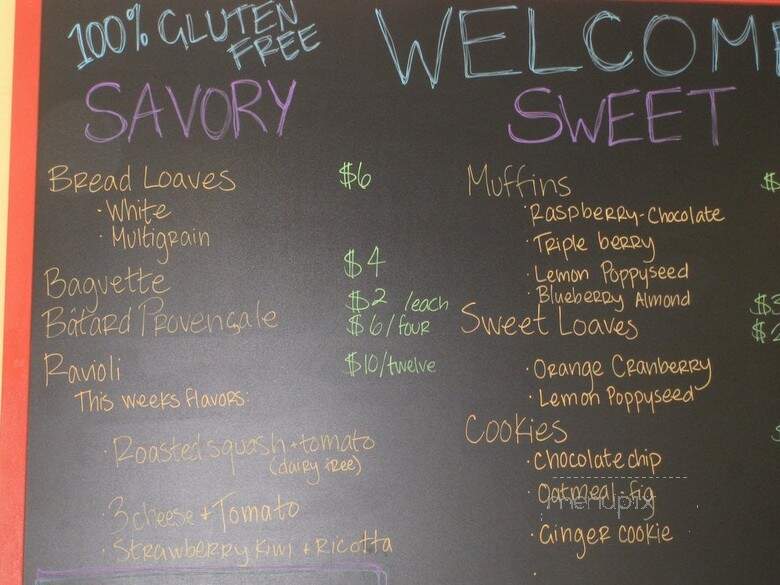 100% GLUTEN
FREE
WELCOM
SAVORY
SWEET
Bread Loaves $6
· White
· Multigrain
Baguette $4
Bâtard Provençale $2 /each
$6/four
Ravioli $10/twelve
This weeks flavors:
· Roasted squash + tomato
(dairy free)
3 cheese + Tomato
· Strawberry Kiwi + Ricotta
Muffins $
· Raspberry-Chocolate
· Triple berry
· Lemon Poppyseed
· Blueberry Almond
Sweet Loaves $
$2
· Orange Cranberry
· Lemon Poppyseed
Cookies
· Chocolate chip
· Oatmeal-fig
· Ginger cookie
menupix